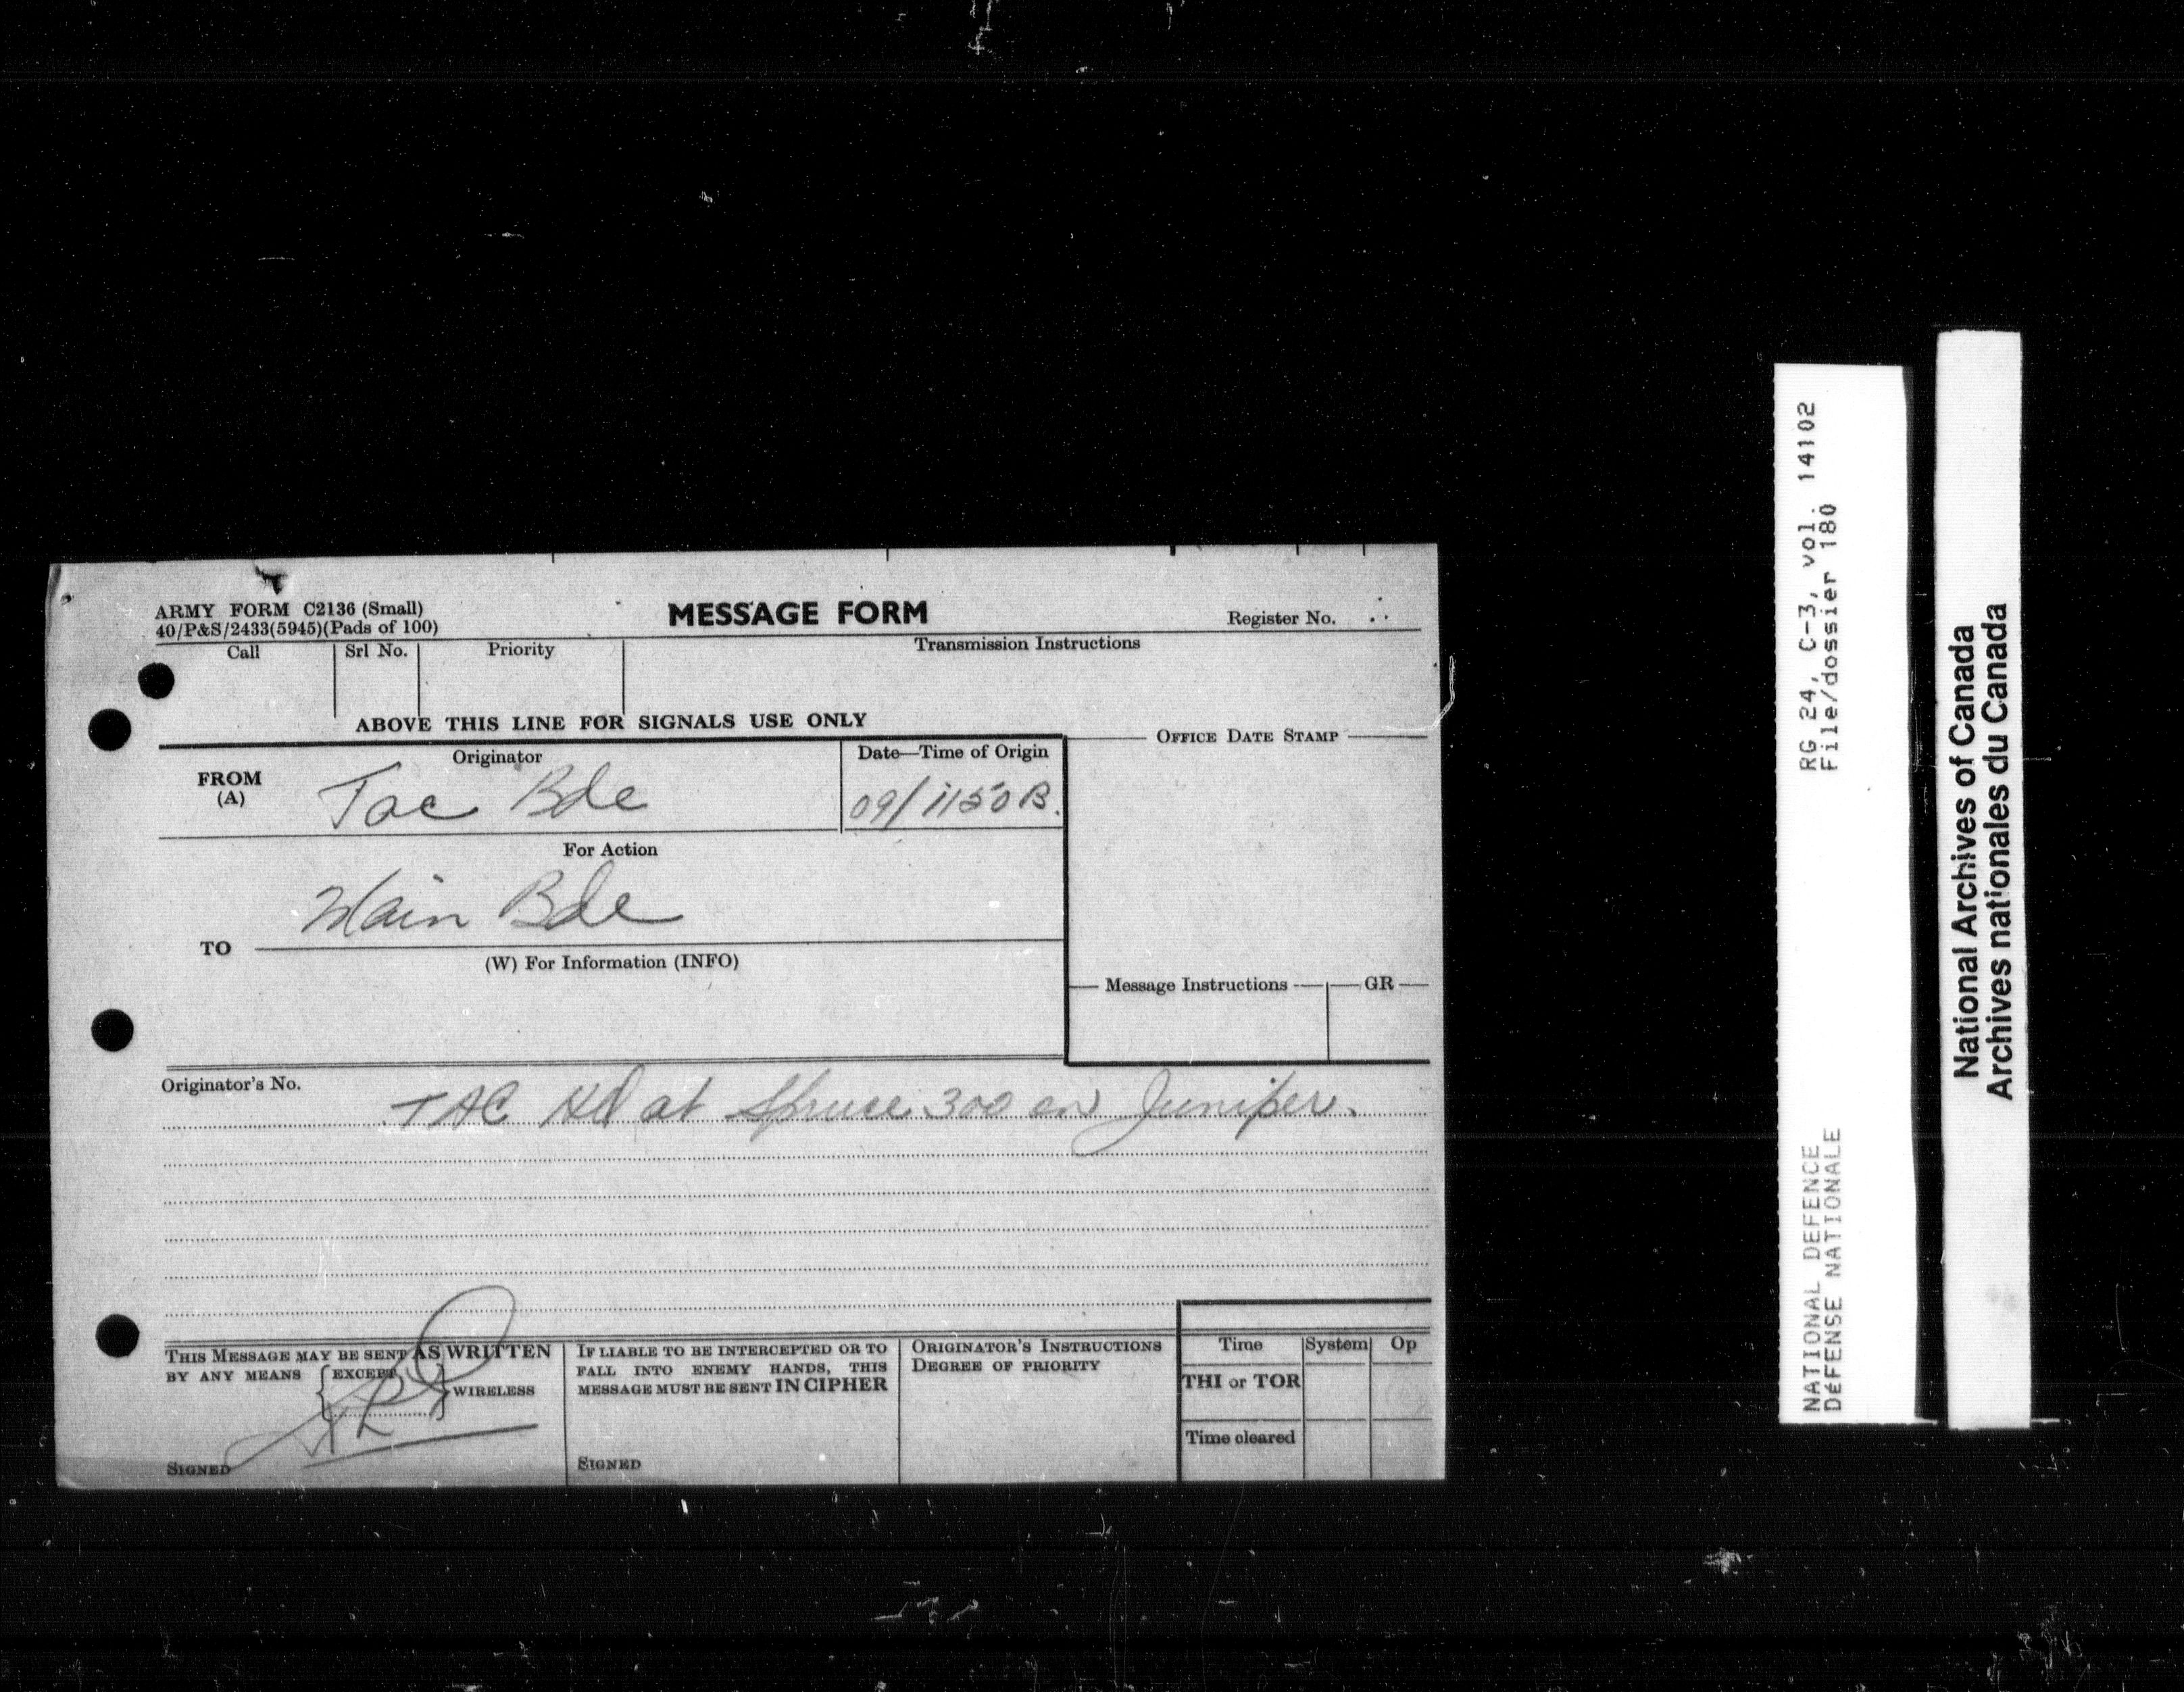 ARMY FORM C2136 (Small)
40/P&S/2433(5945)(Pads of 100)
MESSAGE FORM
Register No.
Call
Srl No.
Priority
Transmission Instructions
ABOVE THIS LINE FOR SIGNALS USE ONLY
FROM
(A)
Originator
Tac Bde
Date—Time of Origin
09/1150B.
OFFICE DATE STAMP
For Action
Main Bde
TO
(W) For Information (INFO)
Message Instructions
GR
Originator's No.
TAC at Spruce 300 on Juniper.
THIS MESSAGE MAY BE SENT AS WRITTEN
BY ANY MEANS
EXCEPT
WIRELESS
SIGNED
IF LIABLE TO BE INTERCEPTED OR TO
FALL INTO ENEMY HANDS, THIS
MESSAGE MUST BE SENT IN CIPHER
SIGNED
ORIGINATOR'S INSTRUCTIONS
DEGREE OF PRIORITY
Time
System
Op
THI or TOR
Time cleared
RG 24, C-3, vol. 14102
File/dossier 180
NATIONAL DEFENCE
DÉFENSE NATIONALE
National Archives of Canada
Archives nationales du Canada